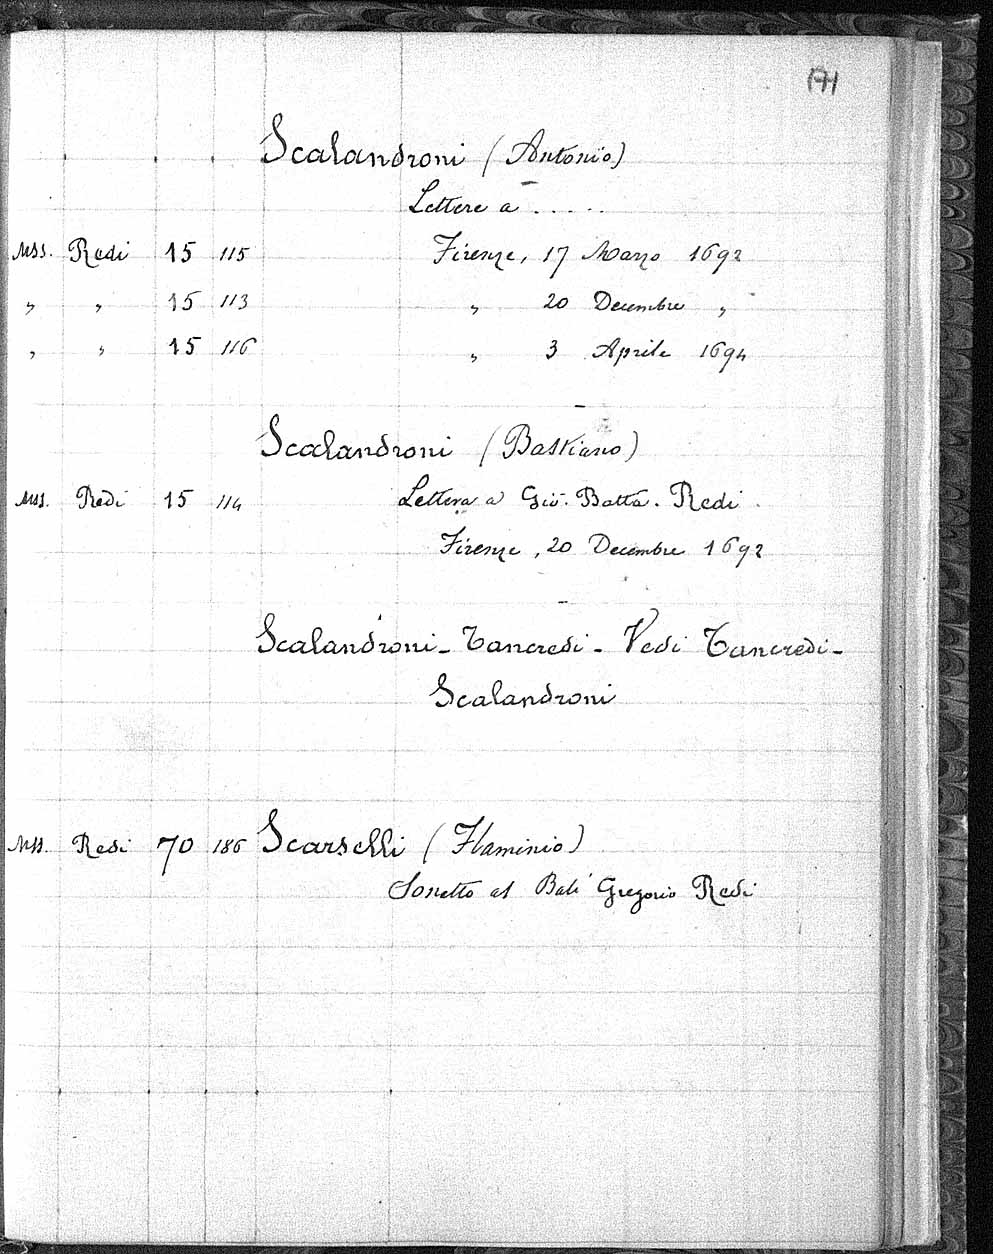 171
Scalandroni (Antonio)
Lettere a .....
Mss. Redi 15 115 Firenze, 17 Marzo 1692
„ „ 15 113 „ 20 Decembre „
„ „ 15 116 „ 3 Aprile 1694
Scalandroni (Bastiano)
Mss. Redi 15 114 Lettera a Gio. Batta. Redi.
Firenze, 20 Decembre 1692
Scalandroni - Tancredi - Vedi Tancredi -
Scalandroni
Mss. Redi 70 186 Scarselli (Flaminio)
Sonetto al Balì Gregorio Redi